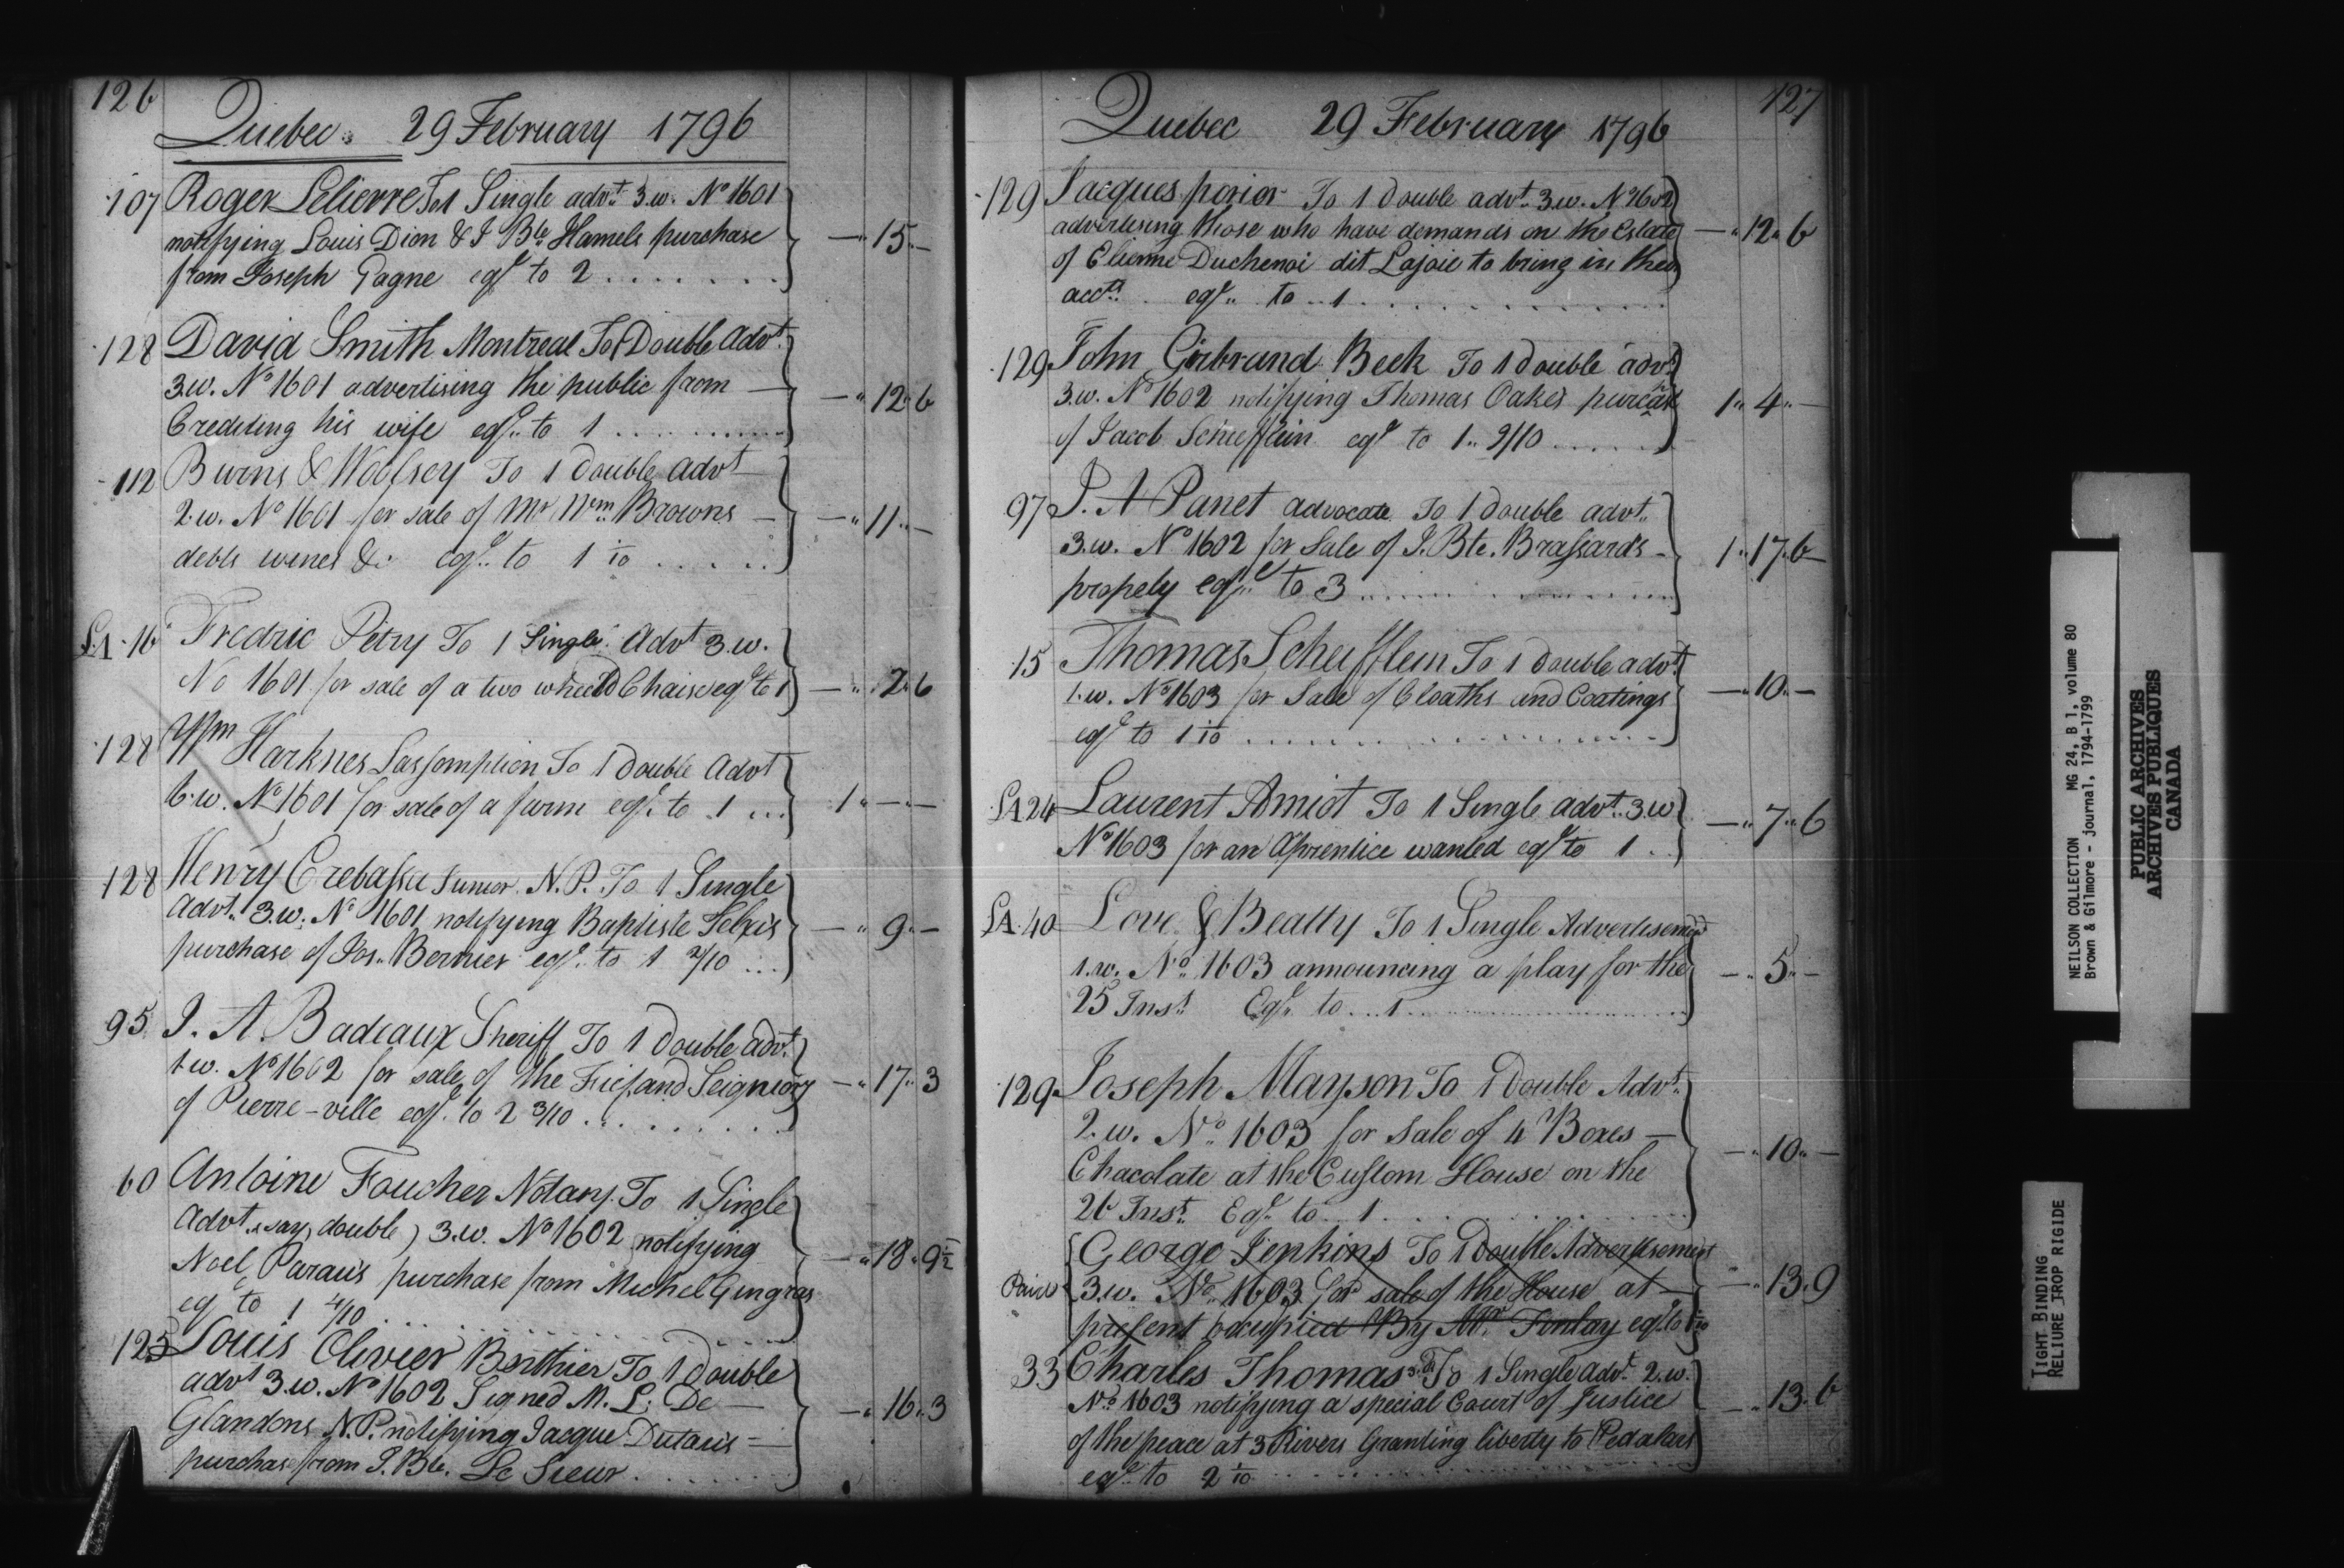 126
Quebec. 29 February 1796
107 Roger Lelievre To 1 Single advt. 3.w. No 1601
notifying Louis Dion & J Bte Hamels purchase — " 15 " —
from Joseph Gagne eql to 2 . . . . . . .
128 David Smith Montreal To 1 Double Advt.
3.w. No 1601 advertising the public from — — " 12 " 6
Crediting his wife eql. to 1 . . . . . . . .
112 Burns & Woolsey To 1 double advt —
2.w. No 1601 for sale of Mr Wm. Browns — — " 11 " —
debts wines &c eql. to 1 1/10 . . . . . .
LA. 16 Fredric Petry To 1 Single Advt 3.w.
No 1601 for sale of a two wheeld Chaise eql to 1 — " 12 " 6
128 Wm Harknes Lassomption To 1 double Advt
6.w. No 1601 for sale of a farm eql. to 1 ... 1 " — " —
128 Henry Crebassa Junior. N.P. To 1 Single
Advt. 3.w. No 1601 notifying Baptiste — " 9 " —
purchase of Jos. Bernier eql. to 1 2/10 ...
95 J. A. Badeaux Sheriff To 1 double advt.
1.w. No 1602 for sale of the Fief and Seigniory — " 17 " 3
of Pierre-ville eql. to 2 3/10 . . . . . . . . .
60 Antoine Foucher Notary. To 1 Single
Advt (say double) 3.w. No 1602 notifying
Noel Parauis purchase from Michel Gingras — " 18 " 9 1/2
eql to 1 4/10 . . . . . . . . .
125 Louis Olivier Berthier To 1 double
advt 3.w. No 1602 Signed M. L. De — — " 16 " 3
Glandons N.P. notifying Jacque Dutauis —
purchase from J. Bte. Le Sieur . . . . . . .
127
Quebec 29 February 1796
129 Jacques porior To 1 double advt. 3.w. No 1602
advertising those who have demands on the Estate — " 12 " 6
of Etienne Duchenoi dit Lajoie to bring in their
accts. eql. to 1 . . . . . . . . .
129 John Girbrand Beek To 1 double advt.
3.w. No 1602 notifying Thomas Oakes purcas 1 " 4 " —
of Jacob Schiefflein eql to 1 " 9/10 . . . . .
97 J. A Panet advocate To 1 double advt.
3.w. No 1602 for Sale of J. Bte. Brassards — 1 " 17 " 6
propety eql. to 3 . . . . . . . . .
15 Thomas Schiefflein To 1 double advt.
1.w. No 1603 for Sale of Cloaths and Coatings — " 10 " —
eql to 1 1/10 . . . . . . . . .
LA 24 Laurent Amiot To 1 Single advt. 3.w
No 1603 for an Aprentice wanted eql to 1 . . — " 7 " 6
LA. 40 Love & Beatty To 1 Single Advertisement
1.w. No. 1603 announcing a play for the — " 5 " —
25 Inst Eql. to . . . 1 . . . . . . . . .
129 Joseph Mayson To 1 Double Advt.
2.w. No. 1603 for sale of 4 Boxes —
Chacolate at the Custom House on the — " 10 " —
26 Inst. Eql. to . . 1 . . . . . . . . .
George Jenkins To 1 Double Advertisement
Paid 3.w. No. 1603 for sale of the House at — — " 13 " 9
present occupied By Mr. Fintay eql. to 1 1/10
33 Charles Thomas To 1 Single Advt. 2.w.
No 1603 notifying a special Court of Justice — " 13 " 6
of the peace at 3 Rivers Granting liberty to Pedalars
eql. to 2 1/10 . . . . . . . . .
NEILSON COLLECTION MG 24, B 1, volume 80
Brown & Gilmore - journal, 1794-1799
PUBLIC ARCHIVES
ARCHIVES PUBLIQUES
CANADA
TIGHT BINDING
RELIURE TROP RIGIDE